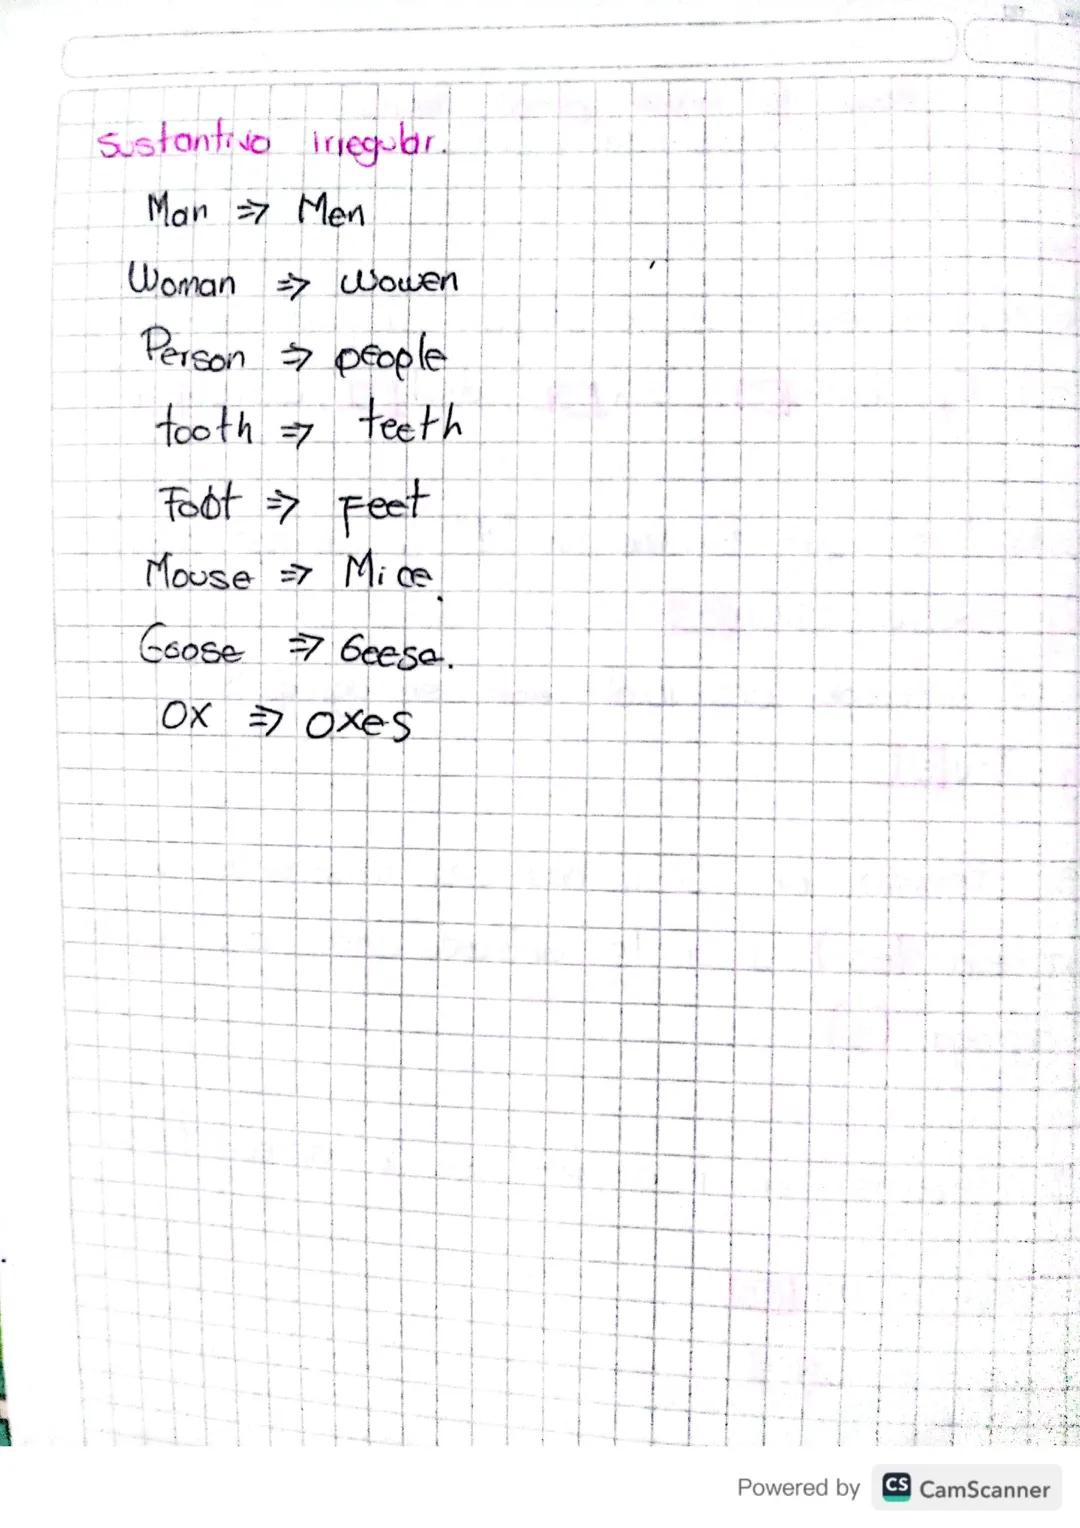 sustantivo irregular.
Man ⇒ Men
Woman ⇒ wowen
Person ⇒ people
tooth ⇒ teeth
Foot ⇒ Feet
Mouse ⇒ Mice.
Goose ⇒ Geese.
OX ⇒ oxes
Powered by CS CamScanner